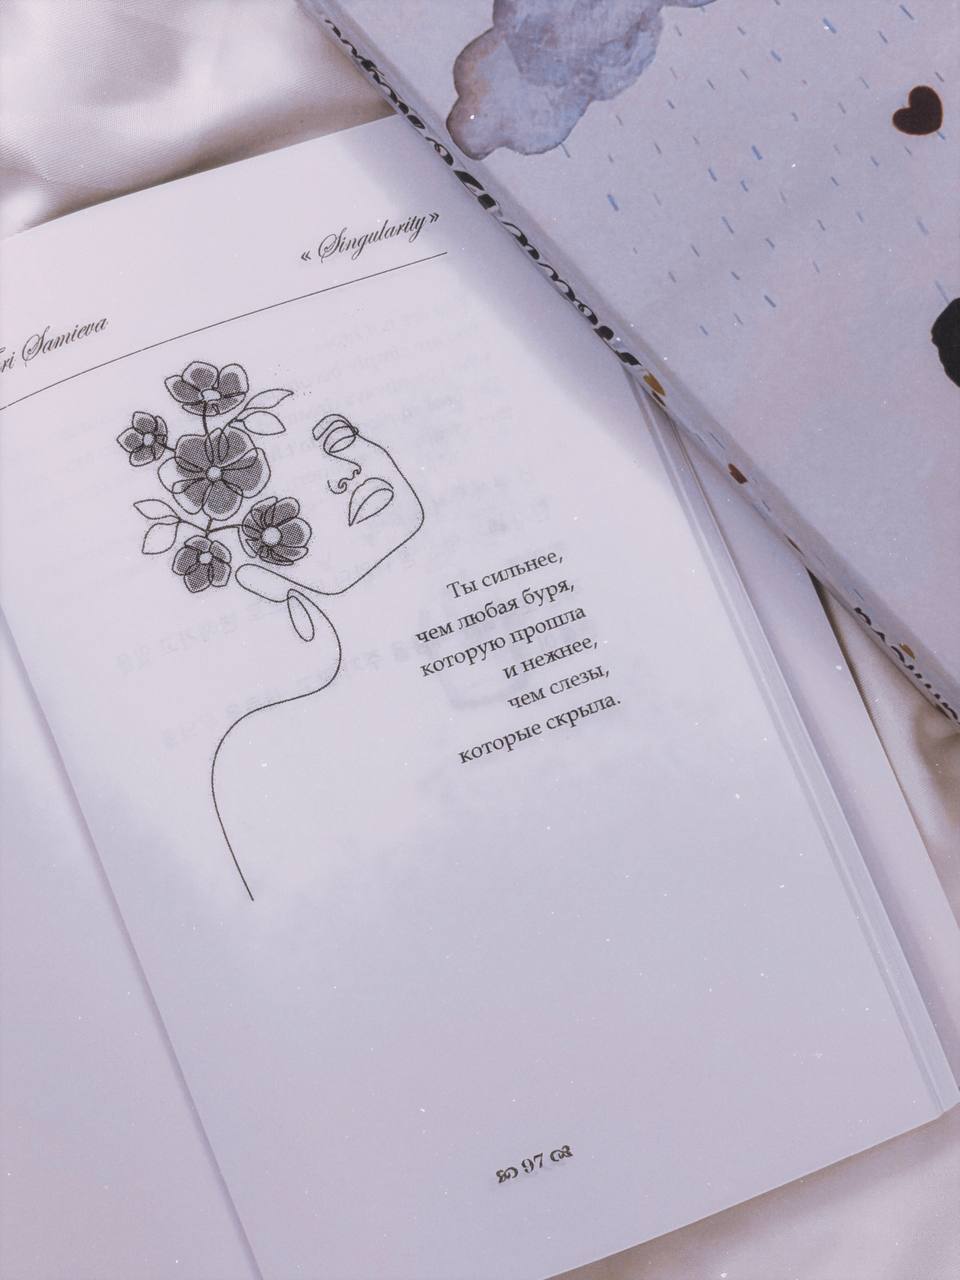 « Singularity»
Samieva
Ты сильнее,
чем любая буря,
которую прошла
и нежнее,
чем слезы,
которые скрыла.
97